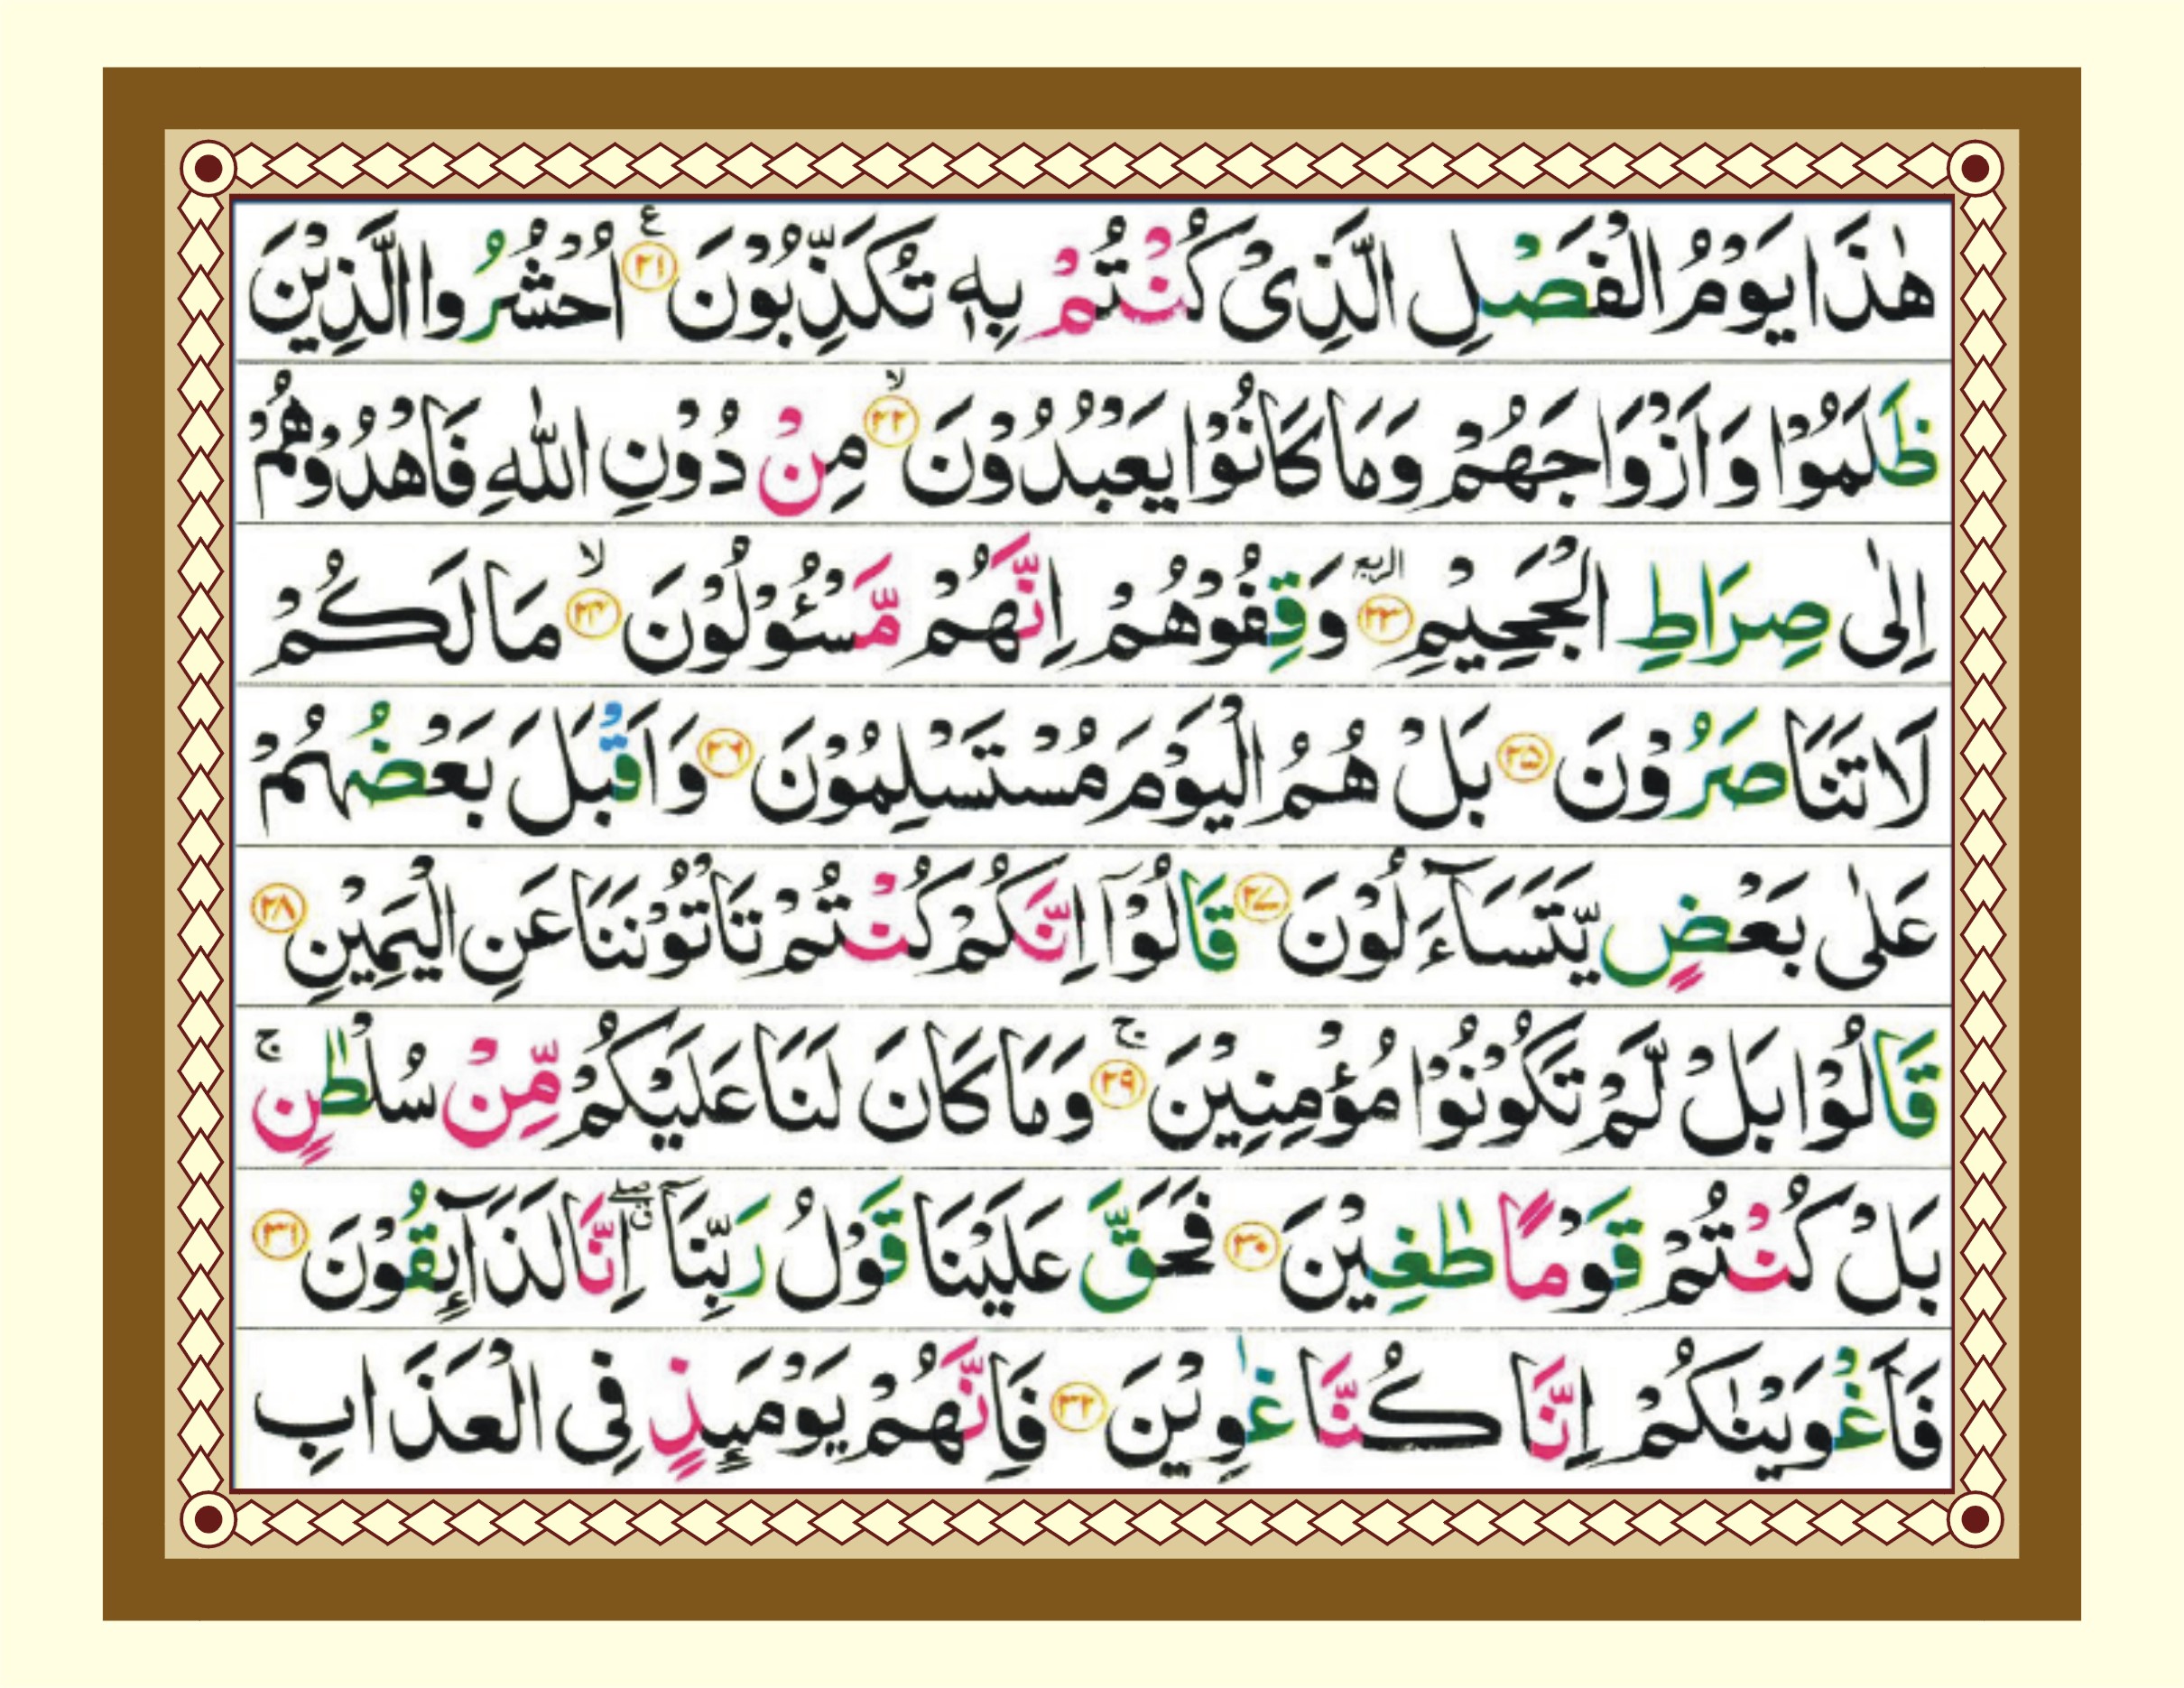 هٰذَا يَوْمُ الْفَصْلِ الَّذِىْ كُنْتُمْ بِهٖ تُكَذِّبُوْنَ ۟ع ﴿۲۱﴾ اُحْشُرُوا الَّذِيْنَ
ظَلَمُوْا وَاَزْوَاجَهُمْ وَمَا كَانُوْا يَعْبُدُوْنَ ۙ﴿۲۲﴾ مِنْ دُوْنِ اللّٰهِ فَاهْدُوْهُمْ
اِلٰى صِرَاطِ الْجَحِيْمِ ﴿۲۳﴾ الربع وَقِفُوْهُمْ اِنَّهُمْ مَّسْئُوْلُوْنَ ۙ﴿۲۴﴾ مَا لَكُمْ
لَا تَنَاصَرُوْنَ ﴿۲۵﴾ بَلْ هُمُ الْيَوْمَ مُسْتَسْلِمُوْنَ ﴿۲۶﴾ وَاَقْبَلَ بَعْضُهُمْ
عَلٰى بَعْضٍ يَّتَسَآءَلُوْنَ ﴿۲۷﴾ قَالُوْٓا اِنَّكُمْ كُنْتُمْ تَاْتُوْنَنَا عَنِ الْيَمِيْنِ ﴿۲۸﴾
قَالُوْا بَلْ لَّمْ تَكُوْنُوْا مُؤْمِنِيْنَ ۚ﴿۲۹﴾ وَمَا كَانَ لَنَا عَلَيْكُمْ مِّنْ سُلْطٰنٍ ۚ
بَلْ كُنْتُمْ قَوْمًا طٰغِيْنَ ﴿۳۰﴾ فَحَقَّ عَلَيْنَا قَوْلُ رَبِّنَآ ۖق اِنَّا لَذَآئِقُوْنَ ﴿۳۱﴾
فَاَغْوَيْنٰكُمْ اِنَّا كُنَّا غٰوِيْنَ ﴿۳۲﴾ فَاِنَّهُمْ يَوْمَئِذٍ فِى الْعَذَابِ